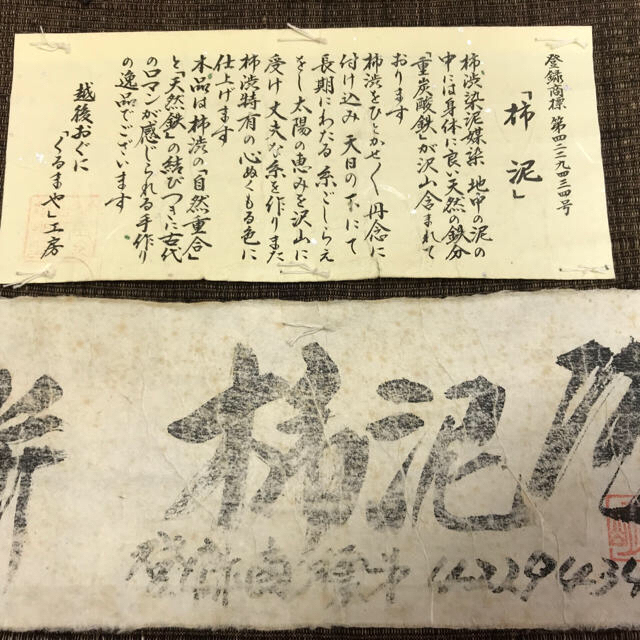 登録商標 第四二二九四三四号
「柿泥」
柿渋染泥媒染 地中の泥の
中には身体に良い天然の鉄分
「重炭酸鉄」が沢山含まれて
おります
柿渋をひとかせ〱丹念に
付け込み 天日の下にて
長期にわたる 糸ごしらえ
をし 太陽の恵みを沢山に
受け 丈夫な糸を作りまた
柿渋特有の心ぬくもる色に
仕上げます
本品は柿渋の「自然重合」
と「天然鉄」の結びつきに古代
のロマンが感じられる手作り
の逸品でございます
越後おぐに
「くるまや」工房
柿泥
登録商標第4229434